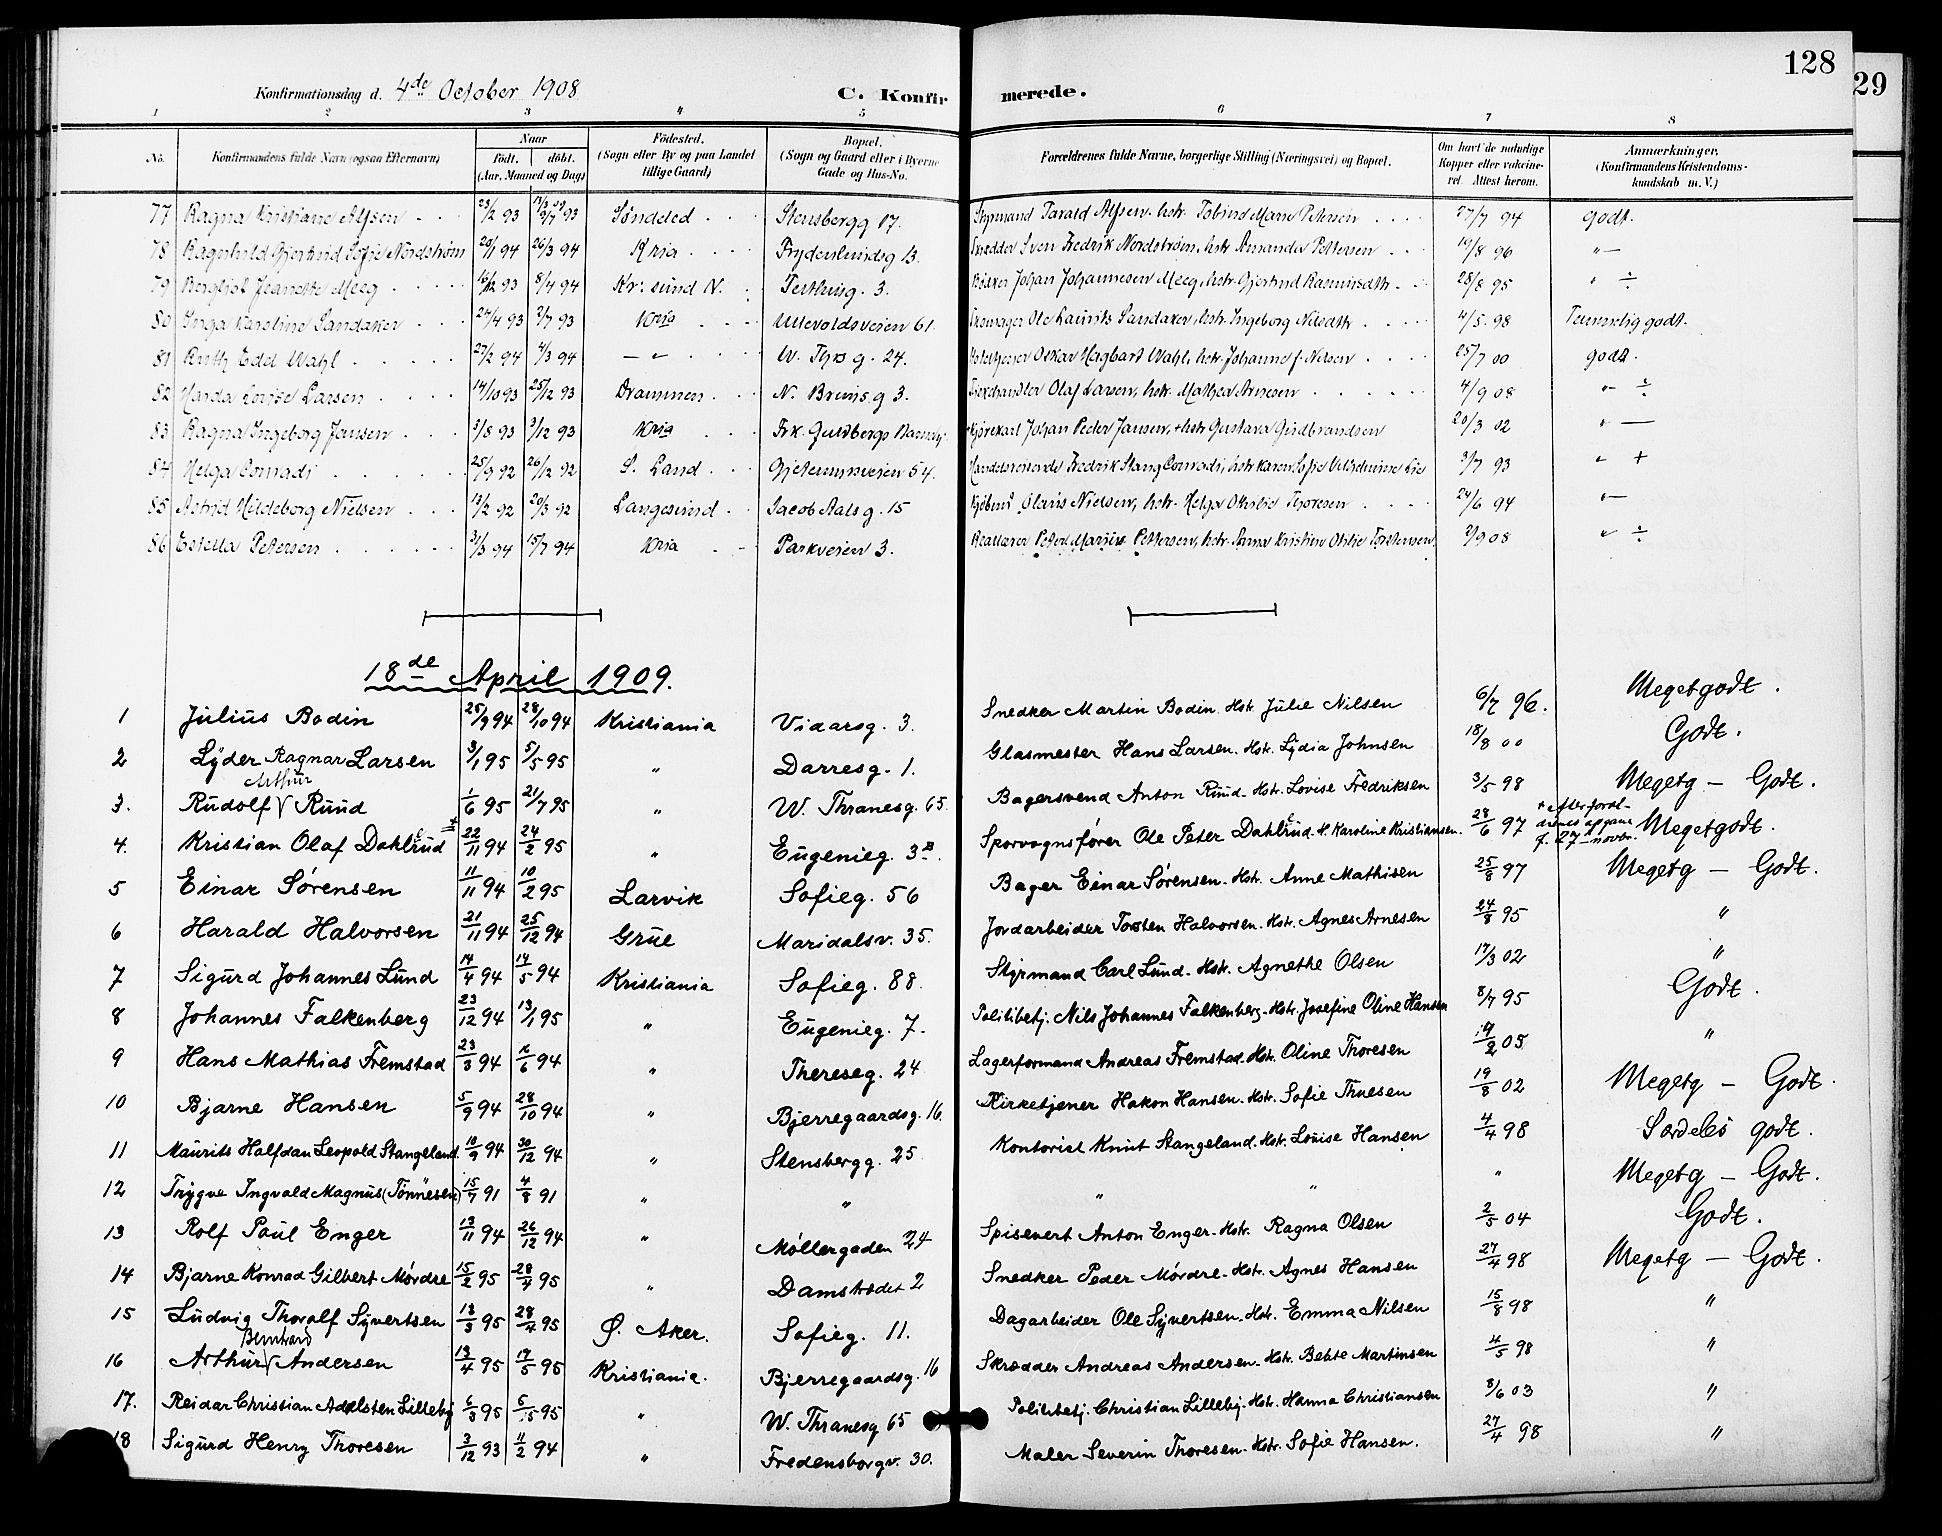 128
29
Konfirmationsdag d. 4de October 1908 C. Konfirmerede.
1 2 3 4 5 6 7 8
No. Konfirmandens fulde Navn (ogsaa Efternavn) Naar født. døbt. (Aar, Maaned og Dag) Fødested. (Sogn eller By og paa Landet tillige Gaard) Bopæl. (Sogn og Gaard eller i Byerne Gade og Hus-No. Forældrenes fulde Navne, borgerlige Stilling (Næringsvei) og Bopæl. Om havt de naturlige Kopper eller vaccineret. Attest herom. Anmærkninger. (Konfirmandens Kristendomskundskab m. V.)
77 Ragna Kristiane Alfsen 23/2 93 93 Søndeled Stensbergg 17. Styrmand Tarald Alfsen, hstr. Tobine Marie Petersen 27/7 94 godt.
78 Ragnhild Gjertrud Sofie Nordström 20/1 94 26/3 94 Kria Frydenlundsg 13. Skrædder Sven Fredrik Nordström, hstr Amanda Pettersen 19/8 96 "—
79 Bergliot Jeanette Meeg 16/12 93 8/4 94 Kr:sund N. Terthusg. 3. Bødker Johan Johannesen Meeg, hstr. Gjertrud Rasmusdtr. 28/8 95 " ÷
80 Inga Karoline Sandaker 24/4 93 2/7 93 Kria Ullevoldsveien 61. Skomager Ole Laurits Sandaker, hstr. Ingeborg Nilsdtr. 4/5 98 Temmelig godt.
81 Ruth Edel Wahl 27/2 94 4/3 94 — " W. Thrs g. 24. Oskar Hagbart Wahl, hstr. Johanne f. Nilsen 25/7 00 godt.
82 Harda Lovise Larsen 14/10 93 25/12 93 Drammen N. Bruns g 3. Olaf Larsen, hstr. Mathea Arnesen 4/9 08 " ÷
83 Ragna Ingeborg Jansen 3/8 93 3/12 93 Kria Frk. Guldbergs Kjørekarl Johan Peder Jansen, hstr Gustava Gudbrandsen 20/3 02 " —
84 Helga Conradi 25/9 92 26/12 92 S. Land Gjetemyrsveien 54. Handelsreisende Fredrik Stang Conradi, hstr Karen Sofie Vilhelmine Lie 3/7 93 " +
85 Astrid Hildeborg Nielsen 13/2 92 20/3 92 Langesund Jacob Aals g. 15 Kjøbm Olaus Nielsen, hstr. Helga Othilie Thoresen 24/6 94 "—
86 Estella Petersen 31/3 94 15/7 94 Kria Parkveien 3. Peter Marius Pettersen, hstr. Anna Kristine Othlie Torstensen. 2/9 08 " ÷
18de April 1909.
1 Julius Bodin 25/9 94 28/10 94 Kristiania Vidarsg. 3. Snedker Martin Bodin. Hstr. Julie Nilsen 6/7 96. Megetgodt.
2 Lyder Ragnar Larsen 3/1 95 5/5 95 " Darresg. 1. Glasmester Hans Larsen. Hstr. Lydia Johnsen 18/8 00 Godt.
Arthur
3. Rudolf √ Ruud 1/6 95 21/7 95 " W. Thranesg. 65. Bagersvend Anton Ruud. Hstr. Lovise Fredriksen 3/5 98 Megetg – Godt.
4. Kristian Olaf Dahlrud + 22/11 94 24/2 95 " Eugenieg. 3B. Sporvognsfører Ole Peter Dahlrud. H. Karoline Kristiansen. 28/6 97 + efter foræl-drenes opgave f. 27 novbr. Megetgodt.
5 Einar Sørensen 11/11 94 10/2 95 Larvik Sofieg. 56 Bager Einar Sørensen. Hstr. Anne Mathisen 25/8 97 Megetg – Godt.
6 Harald Halvorsen 21/11 94 25/12 94 Grue Maridalsv. 35. Jordarbeider Torsten Halvorsen. Hstr. Agnes Arnesen 24/8 95 "
7 Sigurd Johannes Lund 14/4 94 14/5 94 Kristiania Sofieg. 88. Styrmand Carl Lund. Hstr. Agnethe Olsen 17/3 02 "
8 Johannes Falkenberg 23/12 94 13/1 95 " Eugenieg. 7. Politibetj. Nils Johannes Falkenberg. Hstr. Josefine Oline Hansen 8/7 95 Godt.
9 Hans Mathias Fremstad 23/3 94 6 94 " Thereseg. 24 Lagerformand Andreas Fremstad. Hstr. Oline Thoresen /2 05 "
10 Bjarne Hansen 5/9 94 28/10 94 " Bjerregaardsg. 16. Kirketjener Hakon Hansen. Hstr. Sofie Thuesen 19/8 02 Megetg – Godt.
11 Maurits Halfdan Leopold Stangeland. 10/9 94 30/12 94 " Stensbergg. 25 Kontorist Knut Stangeland. Hstr. Louise Hansen 4/4 98 Særdeles godt.
12 Trygve Ingvald Magnus (Tønnesen) 15/7 91 4/8 91 " " " " " Megetg – Godt.
13 Rolf Paul Enger 13/11 94 26/12 94 " Møllergaden 24 Spisevert Anton Enger. Hstr. Ragna Olsen 2/5 04 Godt.
14 Bjarne Konrad Gilbert Mørdre 15/2 95 28/4 95 " Damstrædet 2 Snedker Peder Mørdre. Hstr. Agnes Hansen 27/4 98 Megetg – Godt.
15 Ludvig Thoralf Syvertsen 13/3 95 28/4 95 Ø. Aker. Sofieg. 11. Dagarbeider Ole Syvertsen. Hstr. Emma Nilsen 15/8 98 "
Bernhard
16 Arthur √ Andersen 13/4 95 17/5 95 Kristiania. Bjerregaardsg. 16 Skrædder Andreas Andersen. Hstr. Bebte Martinsen 4/5 98 "
17. Reidar Christian Adelsten Lilleby 6/3 95 5 95 " W. Thranesg 65 Politibetj. Christian Lilleby. Hstr. Hanna Christiansen 8/6 03 "
18 Sigurd Henry Thoresen 3/12 93 11/2 94 " Fredensborgv. 30. Maler Severin Thoresen. Hstr. Sofie Hansen. 27/4 98 "